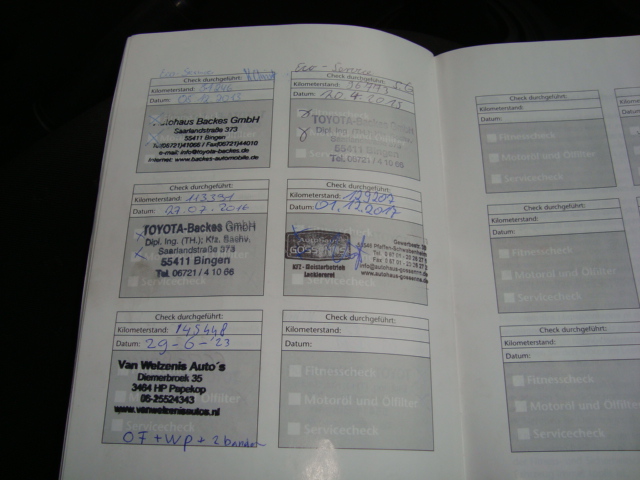 Eco-Service
Check durchgeführt:
Kilometerstand:
Datum:
Autohaus Backes GmbH
Saarlandstraße 373
55411 Bingen
Tel.(06721)41066 / Fax(06721)44010
e-mail: info@toyota-backes.de
Internet: www.backes-automobile.de
Check durchgeführt:
Kilometerstand:
Datum: 20.4.2015
TOYOTA-Backes GmbH
Dipl. Ing. (TH.); Kfz. Sachv.
Saarlandstraße 373
55411 Bingen
Tel. 06721 / 4 10 66
Check durchgeführt:
Kilometerstand: 113391
Datum: 27.07.2016
TOYOTA-Backes GmbH
Dipl. Ing. (TH.); Kfz. Sachv.
Saarlandstraße 373
55411 Bingen
Tel. 06721 / 4 10 66
Check durchgeführt:
Kilometerstand: 129207
Datum: 01.12.2017
Autohaus
KFZ - Meisterbetrieb
Lackiererei
Check durchgeführt:
Kilometerstand: 145448
Datum: 29-6-'23
Van Welzenis Auto's
Diemerbroek 35
3464 HP Papekop
06-25524343
www.vanwelzenisautos.nl
OF + WP + 2 banden
Check durchgeführt:
Kilometerstand:
Datum:
Fitnesscheck
Motoröl und Ölfilter
Servicecheck
Check durchgeführt:
Kilometerstand:
Datum:
Fitnesscheck
Motoröl und Ölfilter
Servicecheck
Check durchgeführt:
Kilometerstand:
Datum:
Fitnesscheck
Motoröl und Ölfilter
Servicecheck
Check durchgeführt:
Kilometerstand:
Datum:
Fitnesscheck
Motoröl und Ölfilter
Servicecheck